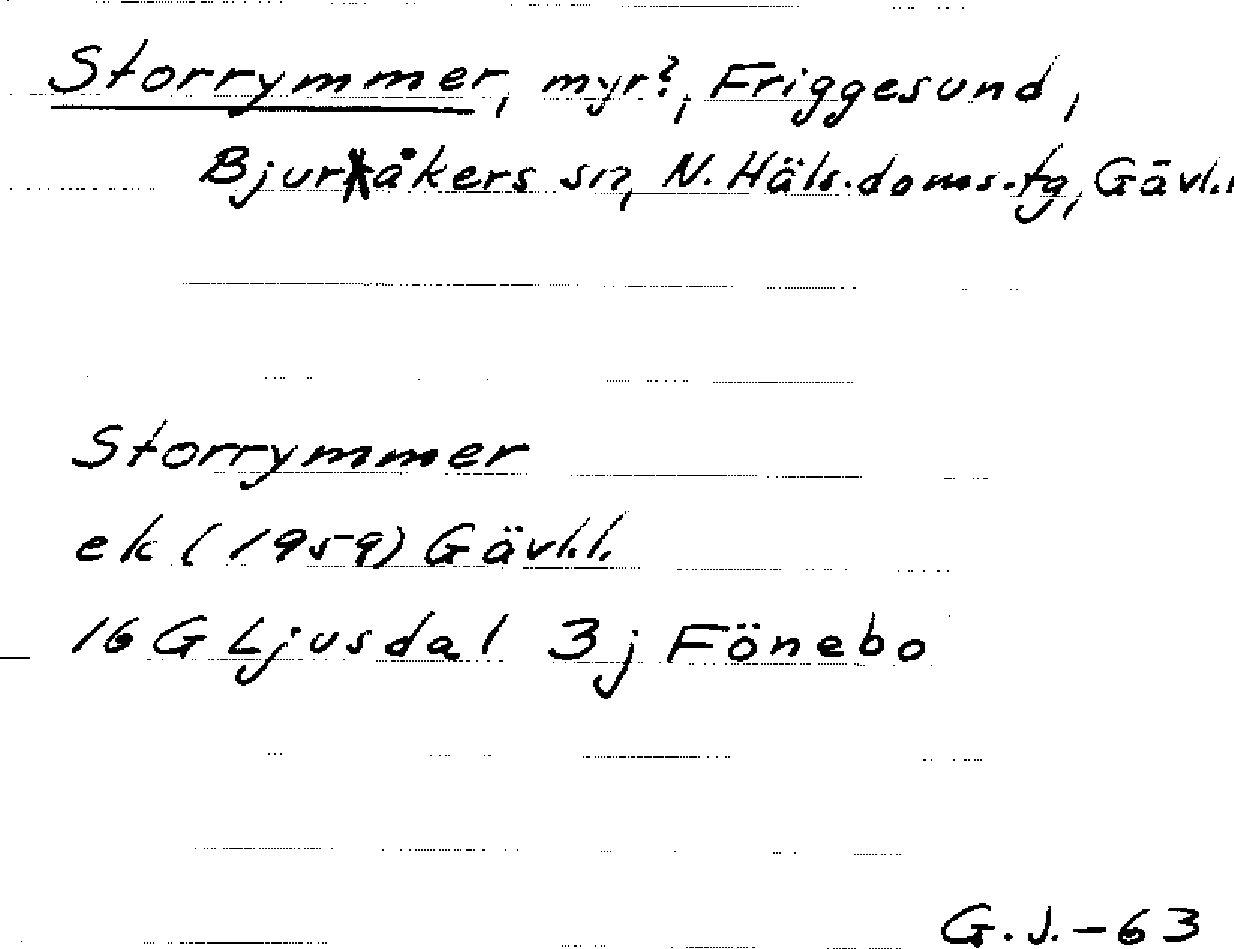 Storrymmer, myr?, Friggesund,
Bjuråkers sn, N. Häls.doms.tg, Gävl.l
Storrymmer
ek (1959) Gävl.l.
16 G Ljusdal 3j Fönebo
G.J.-63